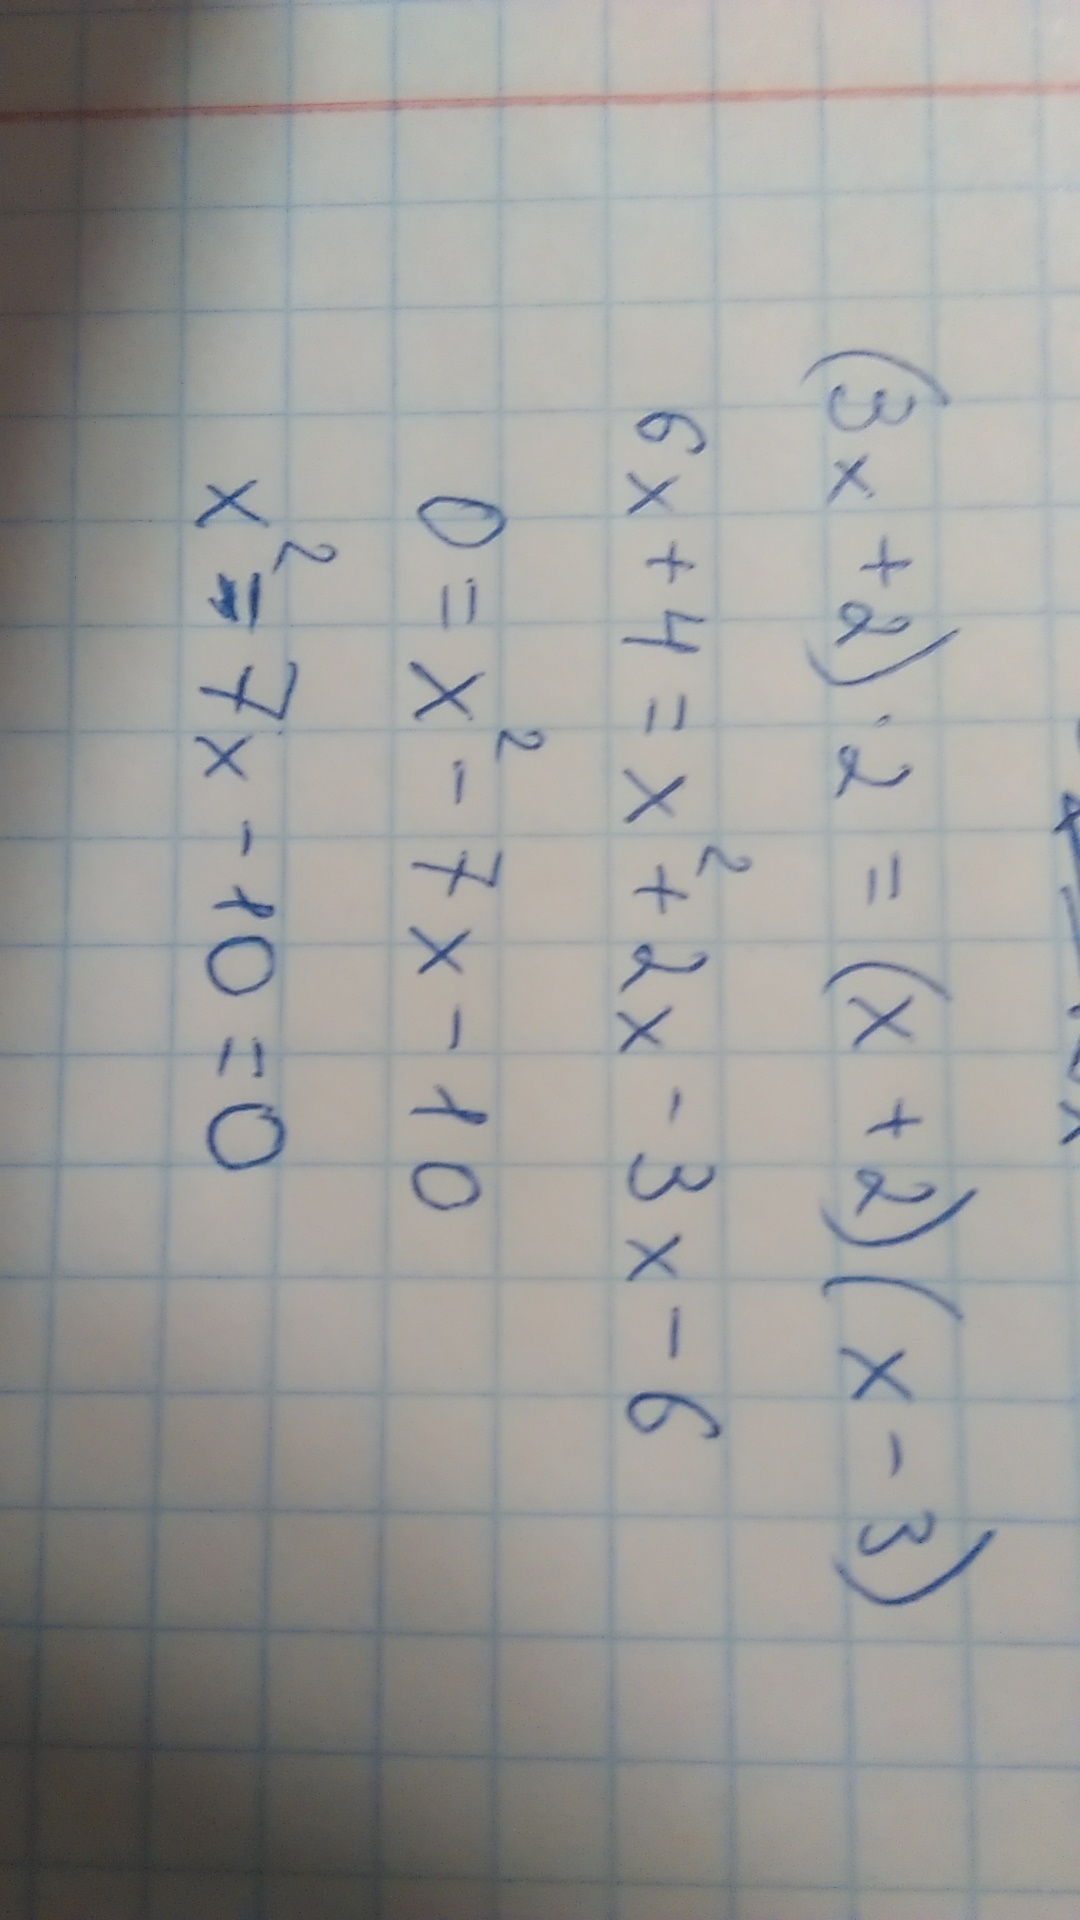 (3x+2)·2=(x+2)(x-3)
6x+4=x²+2x-3x-6
0=x²-7x-10
x²=7x-10=0